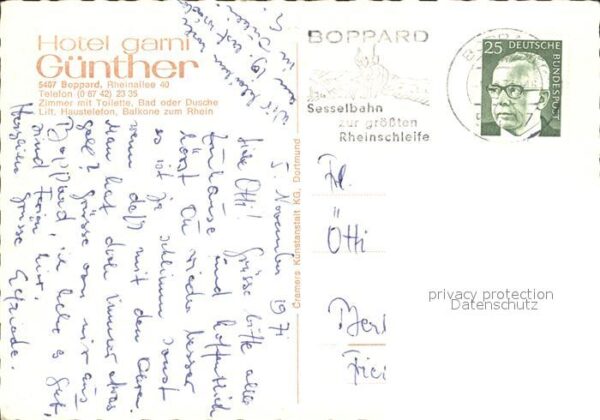 Hotel garni
Günther
5407 Boppard, Rheinallee 40
Telefon (0 67 42) 23 35
Zimmer mit Toilette, Bad oder Dusche
Lift, Haustelefon, Balkone zum Rhein
BOPPARD
Sesselbahn
zur größten
Rheinschleife
25 DEUTSCHE
BUNDESPOST
Cramers Kunstanstalt KG, Dortmund
5. November 1971
Liebe Ötti! Grüsse bitte alle
zuhause und hoffentlich
hörst Du wieder besser
es ist ja schlimm sonst
wenn daß mit den Ohren
Man hat doch immer etwas
gell? Grüsse von mir aus
Boppard, ich habe es gut,
sind Ferien hier.
Herzliche Grüsse
Frl.
Ötti
privacy protection
Datenschutz